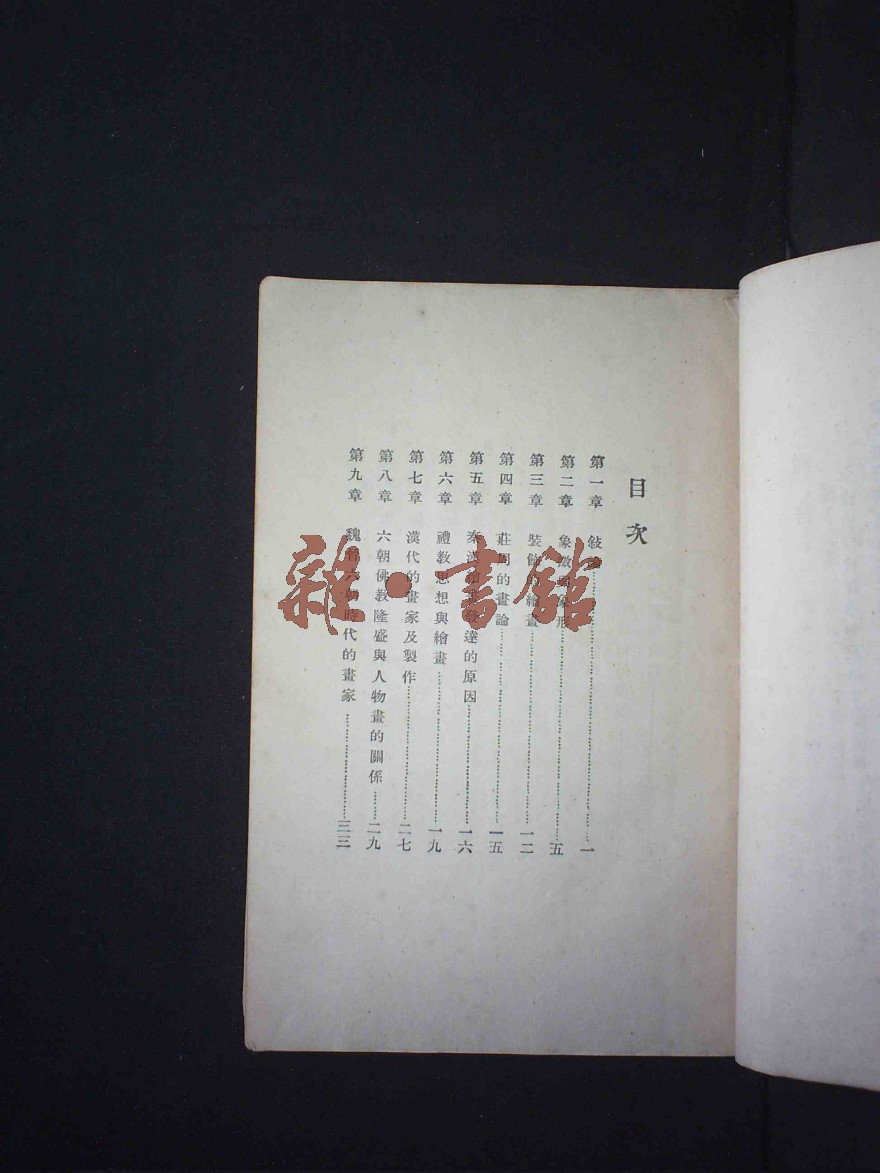 目次
第一章 敍論……一
第二章 象徵與象形……五
第三章 裝飾的繪畫……一二
第四章 莊周的畫論……一五
第五章 秦漢 發達的原因……一六
第六章 禮教思想與繪畫……一九
第七章 漢代的畫家及製作……二七
第八章 六朝佛教隆盛與人物畫的關係……二九
第九章 魏晉六朝時代的畫家……三三
雜·書館